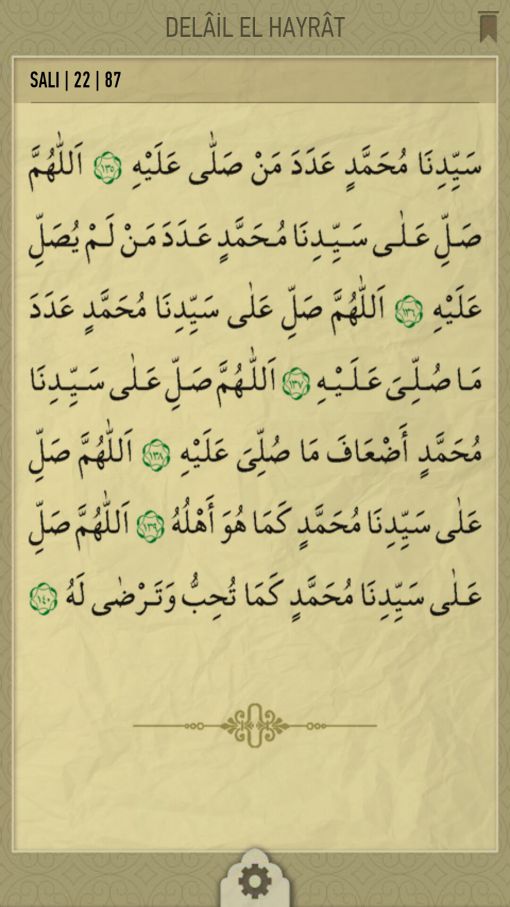 DELÂİL EL HAYRÂT
SALI | 22 | 87
سَيِّدِنَا مُحَمَّدٍ عَدَدَ مَنْ صَلّٰى عَلَيْهِ ١٣٥ اَللّٰهُمَّ
صَلِّ عَلٰى سَيِّدِنَا مُحَمَّدٍ عَدَدَ مَنْ لَمْ يُصَلِّ
عَلَيْهِ ١٣٦ اَللّٰهُمَّ صَلِّ عَلٰى سَيِّدِنَا مُحَمَّدٍ عَدَدَ
مَا صُلِّيَ عَلَيْهِ ١٣٧ اَللّٰهُمَّ صَلِّ عَلٰى سَيِّدِنَا
مُحَمَّدٍ أَضْعَافَ مَا صُلِّيَ عَلَيْهِ ١٣٨ اَللّٰهُمَّ صَلِّ
عَلٰى سَيِّدِنَا مُحَمَّدٍ كَمَا هُوَ أَهْلُهُ ١٣٩ اَللّٰهُمَّ صَلِّ
عَلٰى سَيِّدِنَا مُحَمَّدٍ كَمَا تُحِبُّ وَتَرْضٰى لَهُ ١٤٠